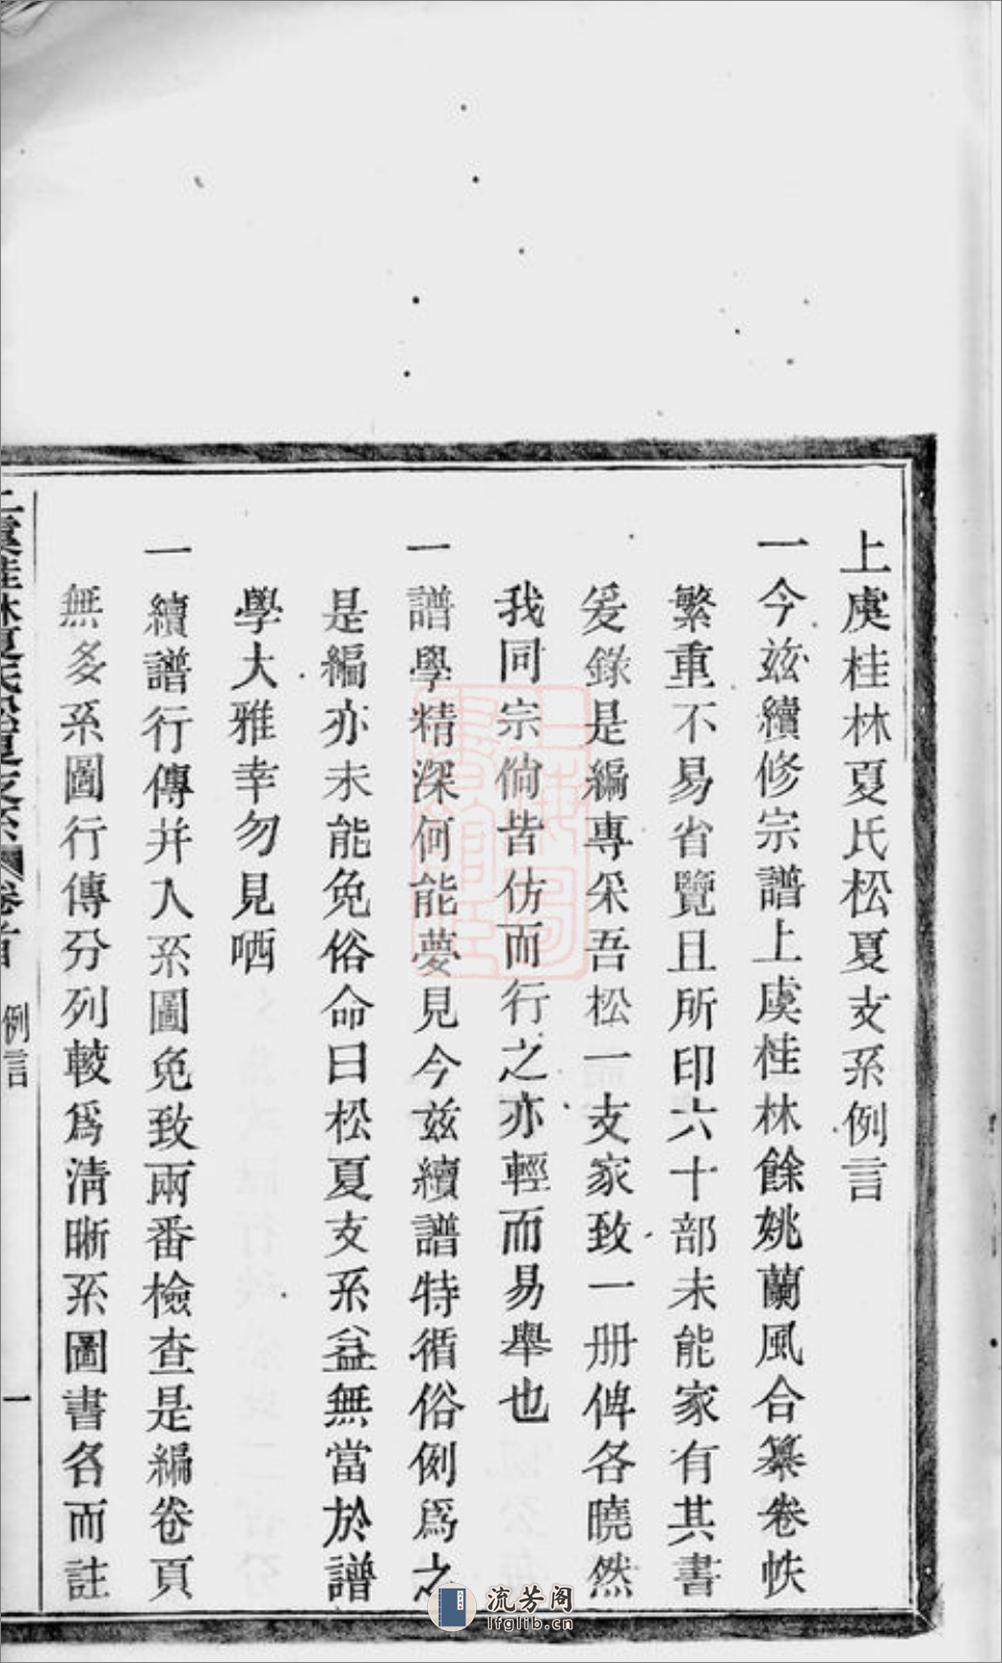 上虞桂林夏氏松夏支系例言
一今茲續修宗譜上虞桂林餘姚蘭風合纂卷帙
繁重不易省覽且所印六十部未能家有其書
爰錄是編專采吾松一支家致一册俾各曉然
我同宗倘皆仿而行之亦輕而易舉也
一譜學精深何能夢見今茲續譜特循俗例爲之
是編亦未能免俗命曰松夏支系益無當於譜
學大雅幸勿見哂
一續譜行傳并入系圖免致兩番檢查是編卷頁
無多系圖行傳分列較爲清晰系圖書名而註
上虞桂林夏氏松夏支系 卷首 例言 一
流芳阁
lfglib.cn